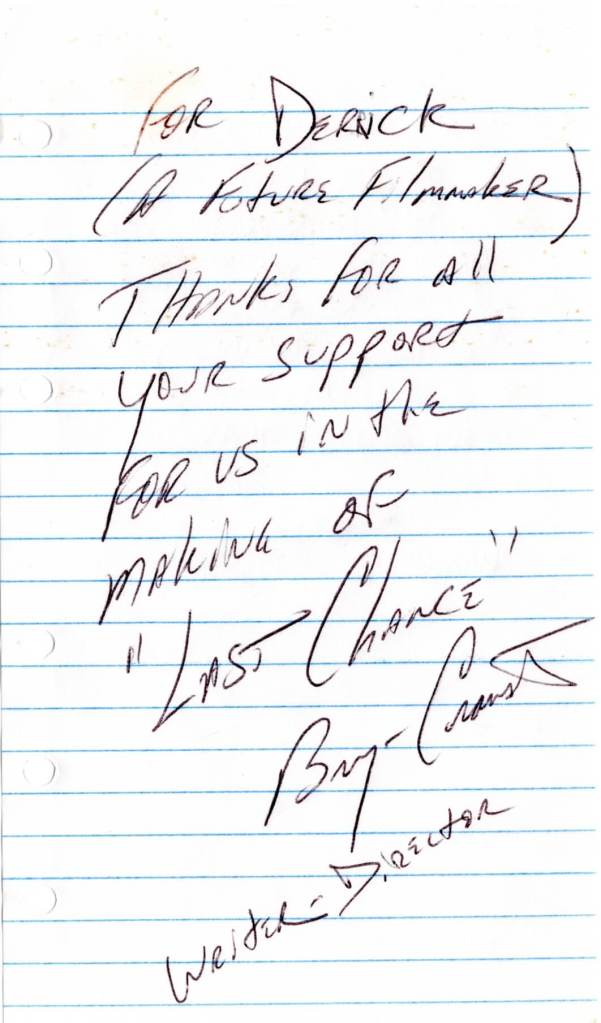 FOR DERRICK
(A FUTURE FILMMAKER)
THANKS FOR All
YOUR SUPPORT
FOR US IN the
MAKING OF
"LAST CHANCE"
Bryan Cranston
WRITER-DIRECTOR